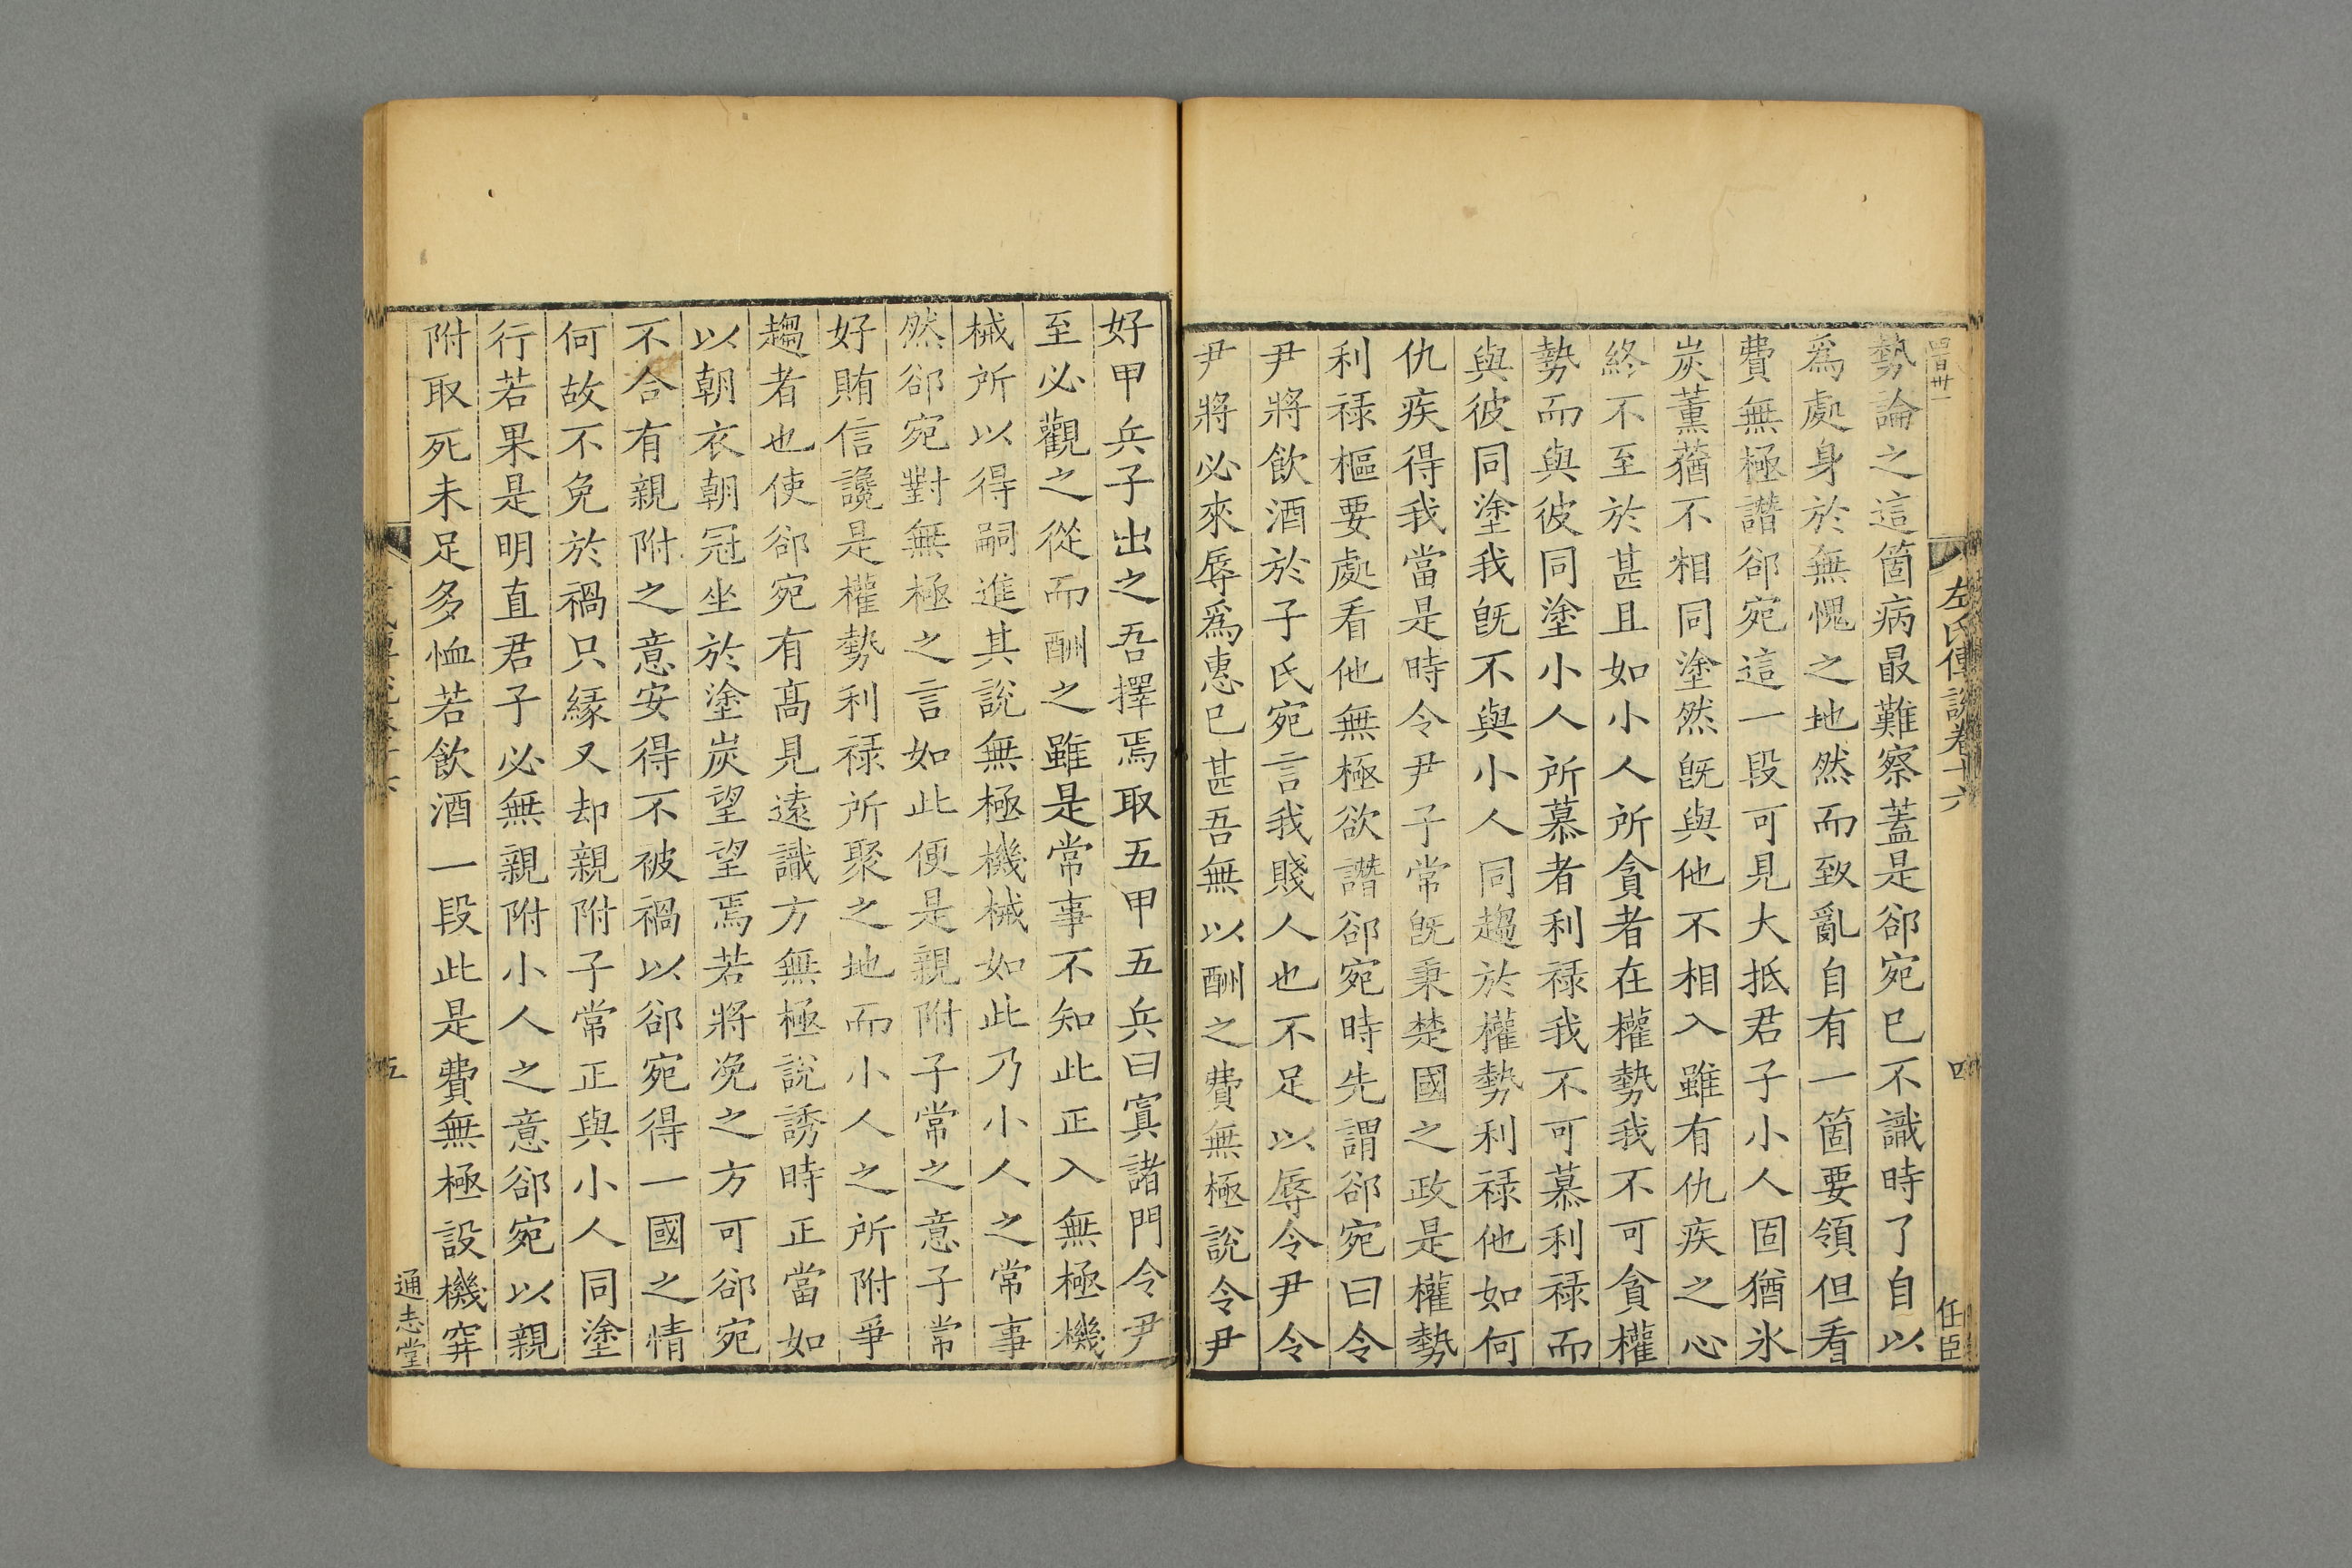 左氏傳說卷十六
四
任臣
勢論之這箇病最難察蓋是郤宛已不識時了自以
爲處身於無愧之地然而致亂自有一箇要領但看
費無極譖郤宛這一段可見大抵君子小人固猶氷
炭薰蕕不相同塗然旣與他不相入雖有仇疾之心
終不至於甚且如小人所貪者在權勢我不可貪權
勢而與彼同塗小人所慕者利祿我不可慕利祿而
與彼同塗我旣不與小人同趨於權勢利祿他如何
仇疾得我當是時令尹子常旣秉楚國之政是權勢
利祿樞要處看他無極欲譖郤宛時先謂郤宛曰令
尹將飲酒於子氏宛言我賤人也不足以辱令尹令
尹將必來辱爲惠已甚吾無以酬之費無極說令尹
好甲兵子出之吾擇焉取五甲五兵曰寘諸門令尹
至必觀之從而酬之雖是常事不知此正入無極機
械所以得嗣進其說無極機械如此乃小人之常事
然郤宛對無極之言如此便是親附子常之意子常
好賄信讒是權勢利祿所聚之地而小人之所附爭
趨者也使郤宛有高見遠識方無極說誘時正當如
以朝衣朝冠坐於塗炭望望焉若將浼之方可郤宛
不合有親附之意安得不被禍以郤宛得一國之情
何故不免於禍只緣又却親附子常正與小人同塗
行若果是明直君子必無親附小人之意郤宛以親
附取死未足多恤若飲酒一段此是費無極設機穽
五
通志堂